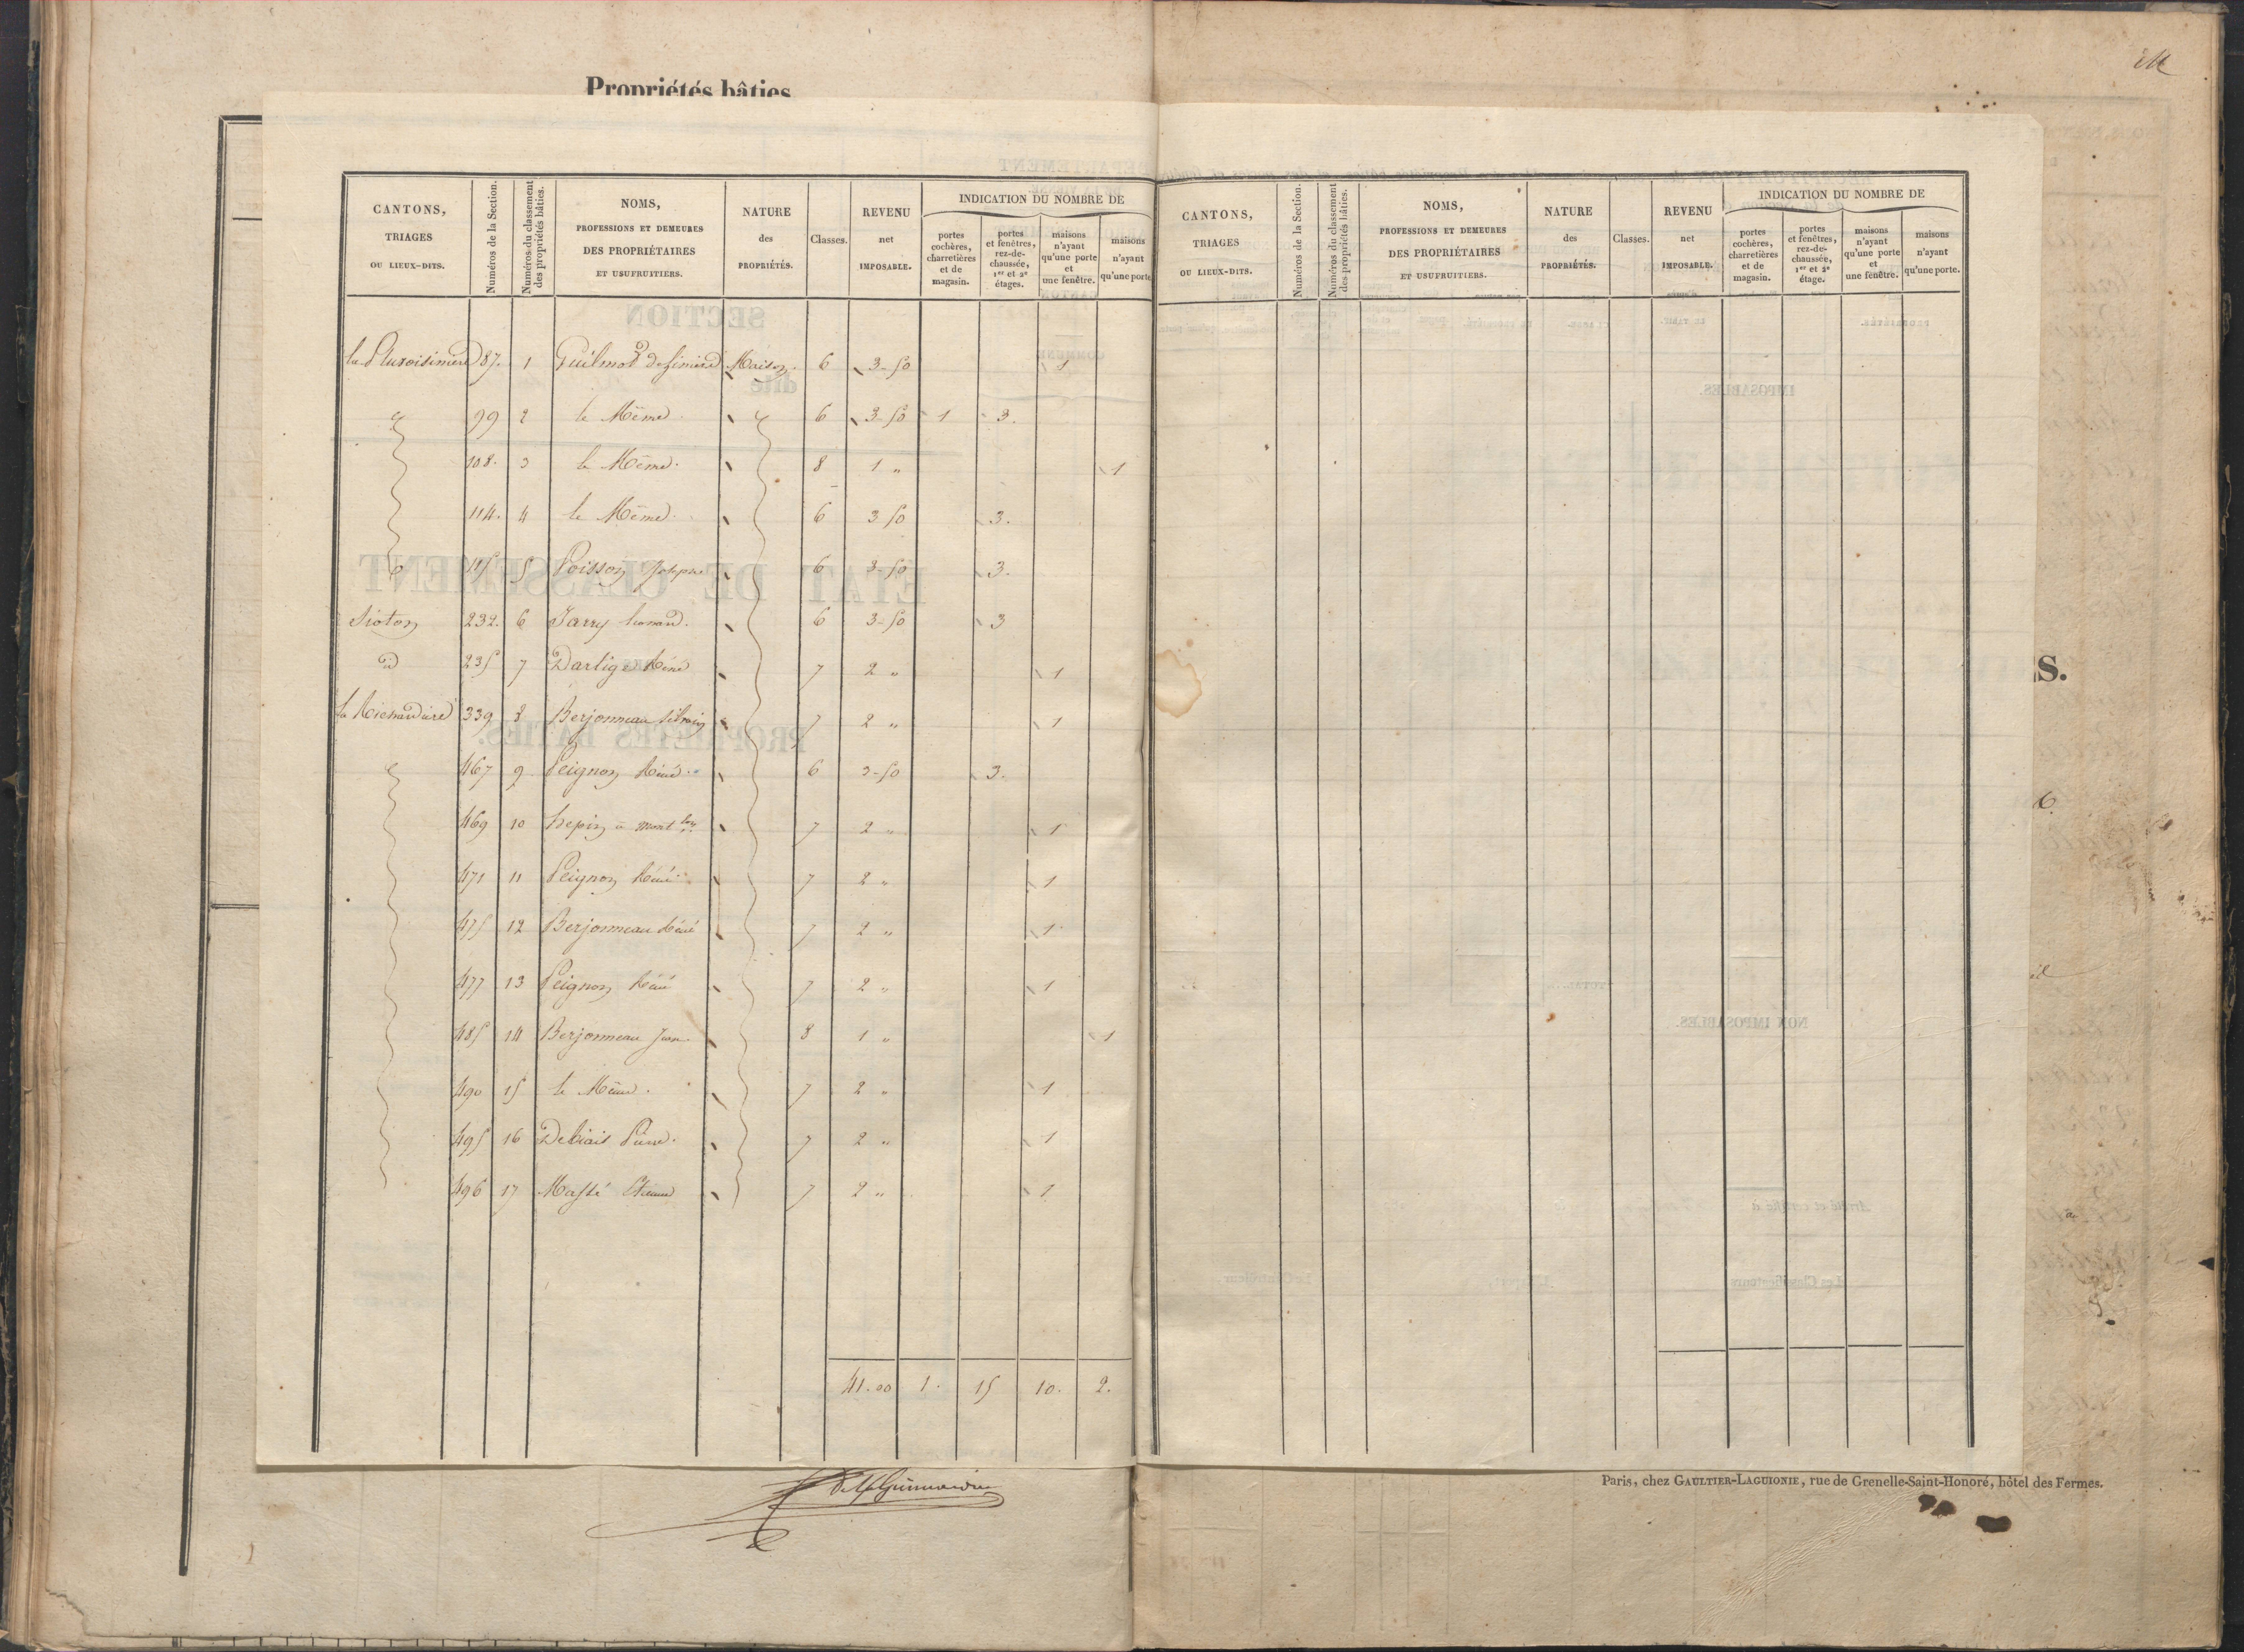 Propriétés bâties
CANTONS, TRIAGES OU LIEUX-DITS. | Numéros de la Section. | Numéros du classement des propriétés bâties. | NOMS, PROFESSIONS ET DEMEURES DES PROPRIÉTAIRES ET USUFRUITIERS. | NATURE des PROPRIÉTÉS. | Classes. | REVENU net IMPOSABLE. | INDICATION DU NOMBRE DE | portes cochères, charretières et de magasin. | portes et fenêtres, rez-de-chaussée, 1er et 2e étages. | maisons n'ayant qu'une porte et une fenêtre. | maisons n'ayant qu'une porte
87. 1 Maison 6 3-50 1
99 2 le Même 6 3-50 1 3.
108. 3 le Même. 8 1 " 1
114. 4 le Même. 6 3 50 3.
115 5 Poisson Joseph 6 3-50 3.
232. 6 Jarry 6 3-50 3
id 235 7 Darlige Réné 7 2 " 1
339 8 Berjonneau 7 2 " 1
467 9 Peignon Réné. 6 3-50 3.
469 10 à 7 2 " 1
471 11 Peignon Réné 7 2 " 1
475 12 Berjonneau Réné 7 2 " 1
477 13 Peignon Réné 7 2 " 1
485 14 Berjonneau Jean 8 1 " 1
490 15 le Même. 7 2 " 1
495 16 Debiais Pierre. 7 2 " 1
496 17 Massé Etienne 7 2 " 1
41.00 1. 15 10. 2.
CANTONS, TRIAGES OU LIEUX-DITS. | Numéros de la Section. | Numéros du classement des propriétés bâties. | NOMS, PROFESSIONS ET DEMEURES DES PROPRIÉTAIRES ET USUFRUITIERS. | NATURE des PROPRIÉTÉS. | Classes. | REVENU net IMPOSABLE. | INDICATION DU NOMBRE DE | portes cochères, charretières et de magasin. | portes et fenêtres, rez-de-chaussée, 1er et 2e étage. | maisons n'ayant qu'une porte et une fenêtre. | maisons n'ayant qu'une porte.
S.
Paris, chez GAULTIER-LAGUIONIE, rue de Grenelle-Saint-Honoré, hôtel des Fermes.